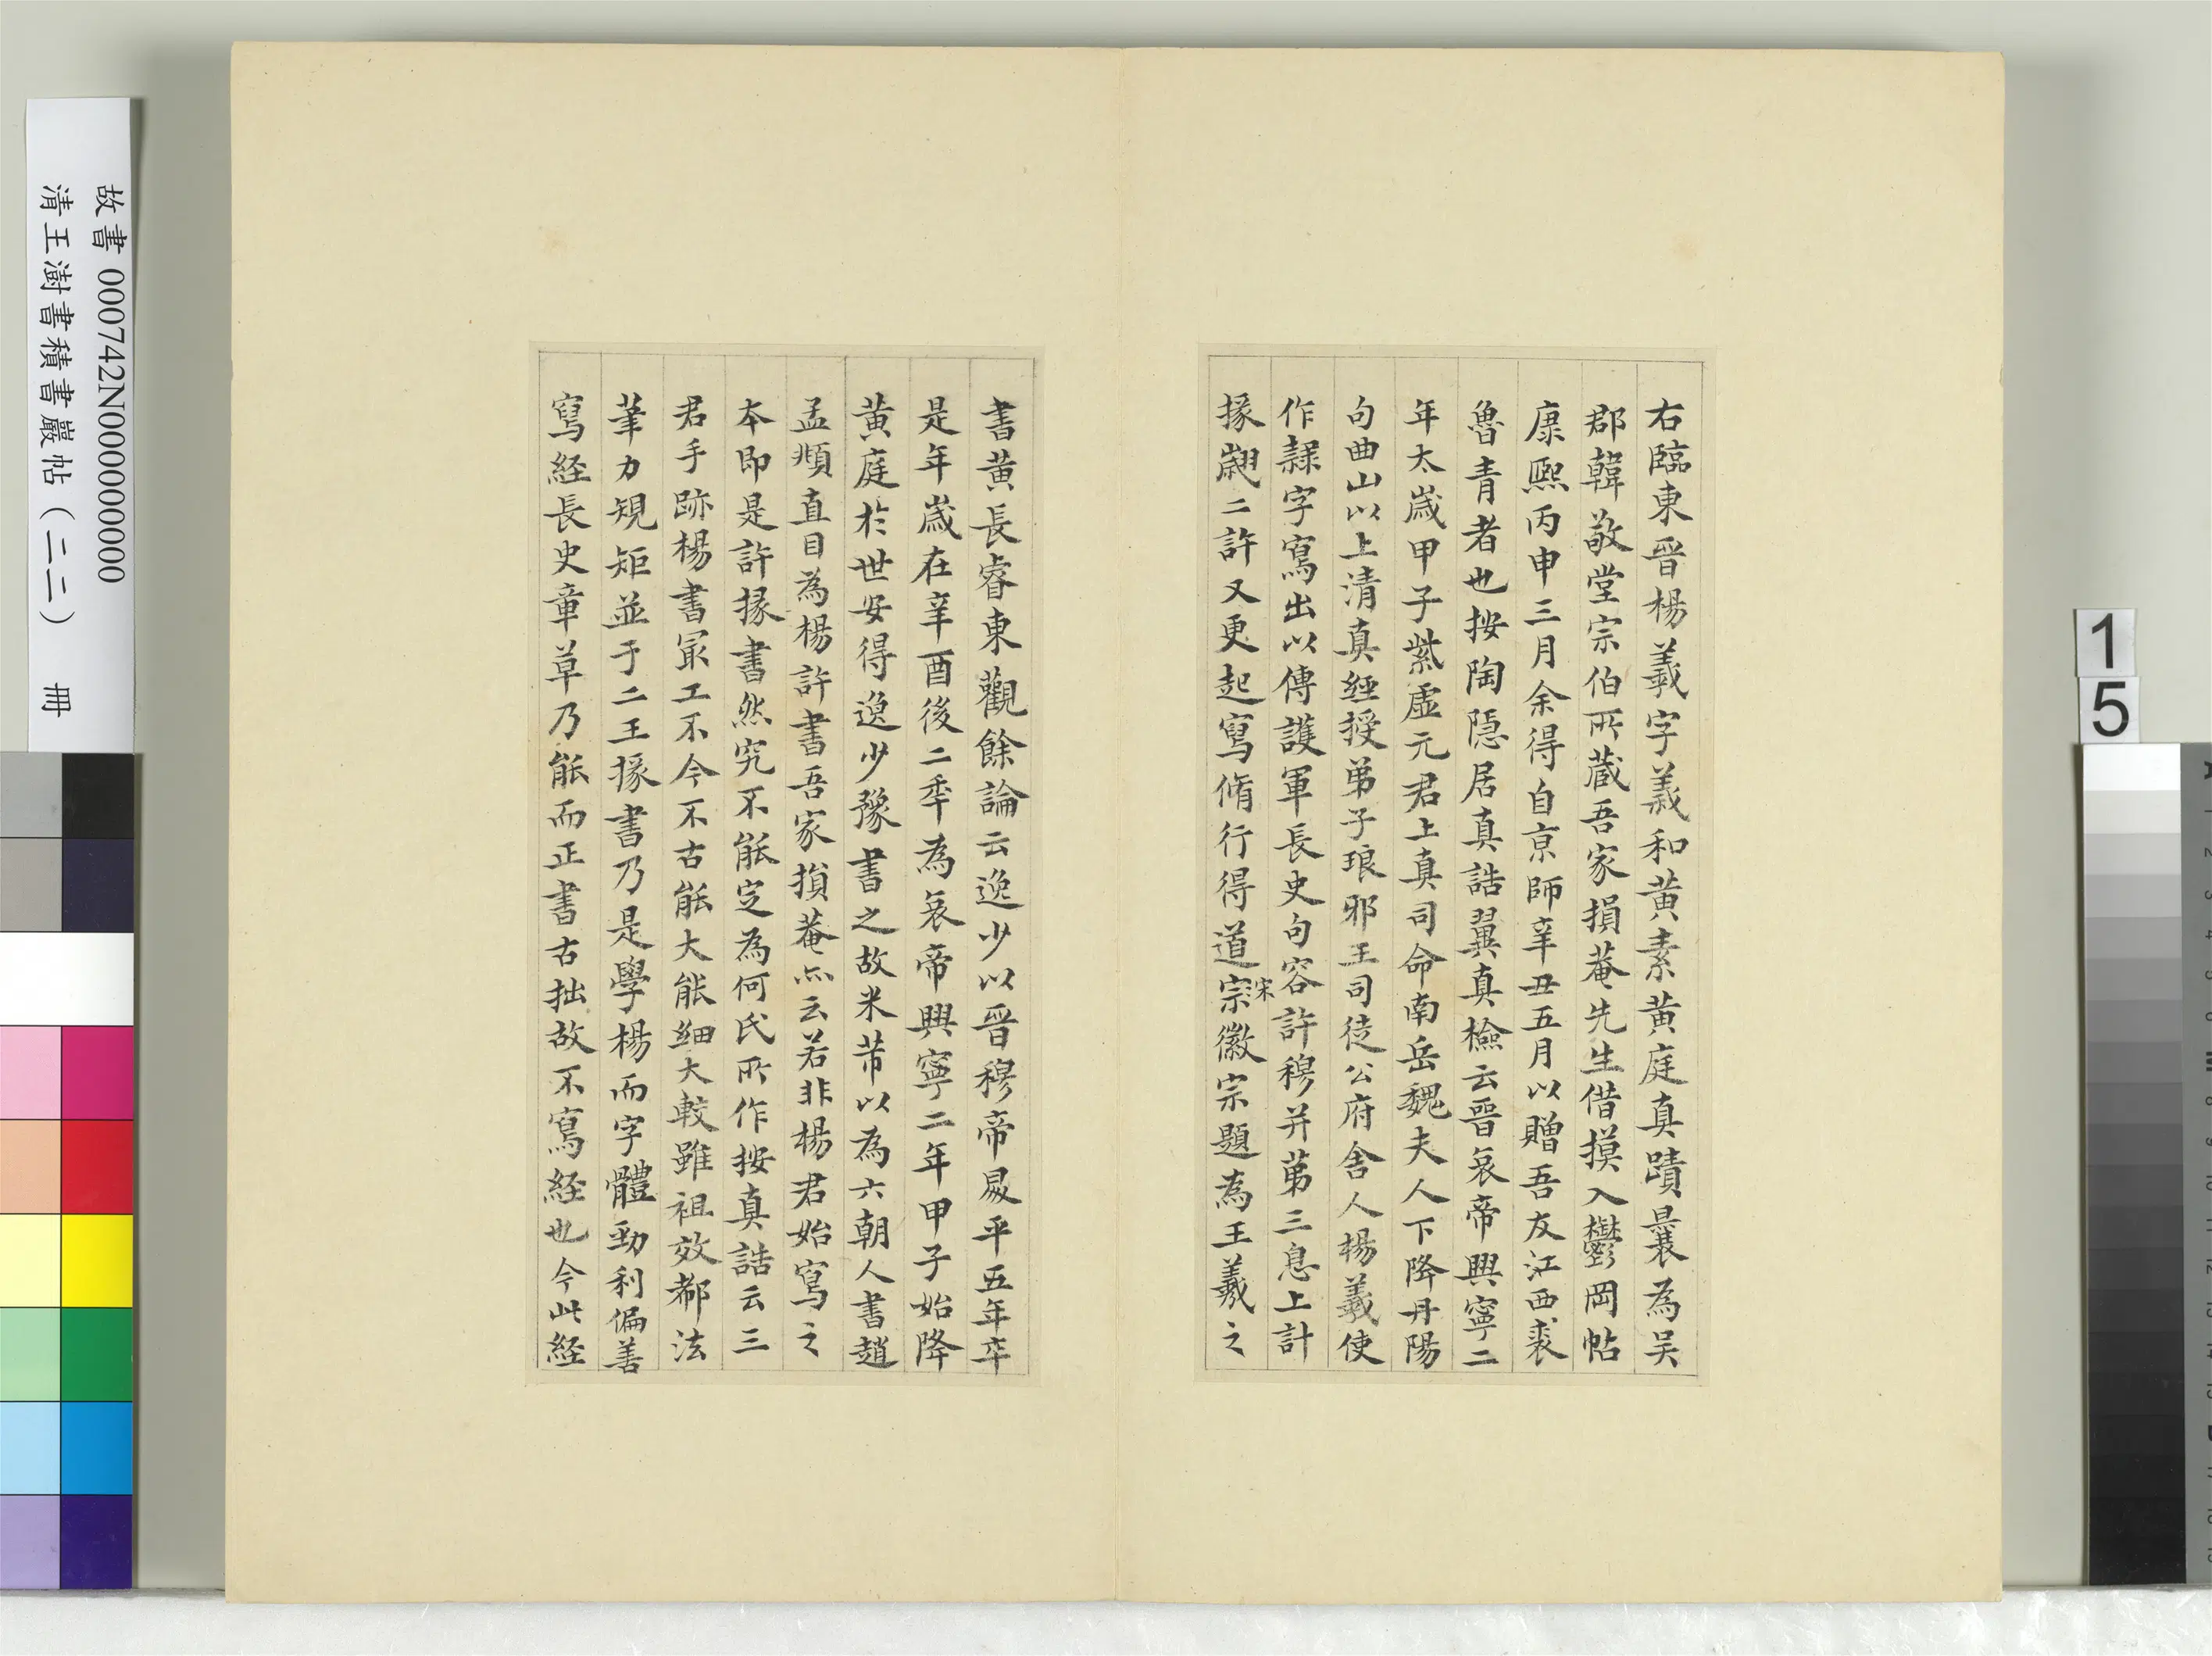 右臨東晋楊羲字義和黄素黄庭真蹟曩為吴
郡韓敬堂宗伯所蔵吾家損菴先生借摸入鬱岡帖
康熙丙申三月余得自京師辛丑五月以贈吾友江西裘
魯青者也按陶隠居真誥翼真檢云晋哀帝興寧二
年太歳甲子紫虚元君上真司命南岳魏夫人下降丹陽
句曲山以上清真經授弟子琅邪王司徒公府舍人楊羲使
作隷字寫出以傳護軍長史句容許穆并第三息上計
掾翽二許又更起寫脩行得道宋宗徽宗題為王羲之
書黄長睿東觀餘論云逸少以晋穆帝昇平五年卒
是年歳在辛酉後二年為哀帝興寧二年甲子始降
黄庭於世安得逸少豫書之故米芾以為六朝人書趙
孟頫直目為楊許書吾家損菴亦云若非楊君始寫之
本即是許掾書然究不能定為何氏所作按真誥云三
君手跡楊書冣工不今不古能大能細大較雖祖效郗法
筆力規矩並于二王掾書乃是學楊而字體勁利偏善
寫経長史章草乃能而正書古拙故不寫経也今此経
故書 000742N000000000
清王澍書積書巖帖（二二） 冊
1
5